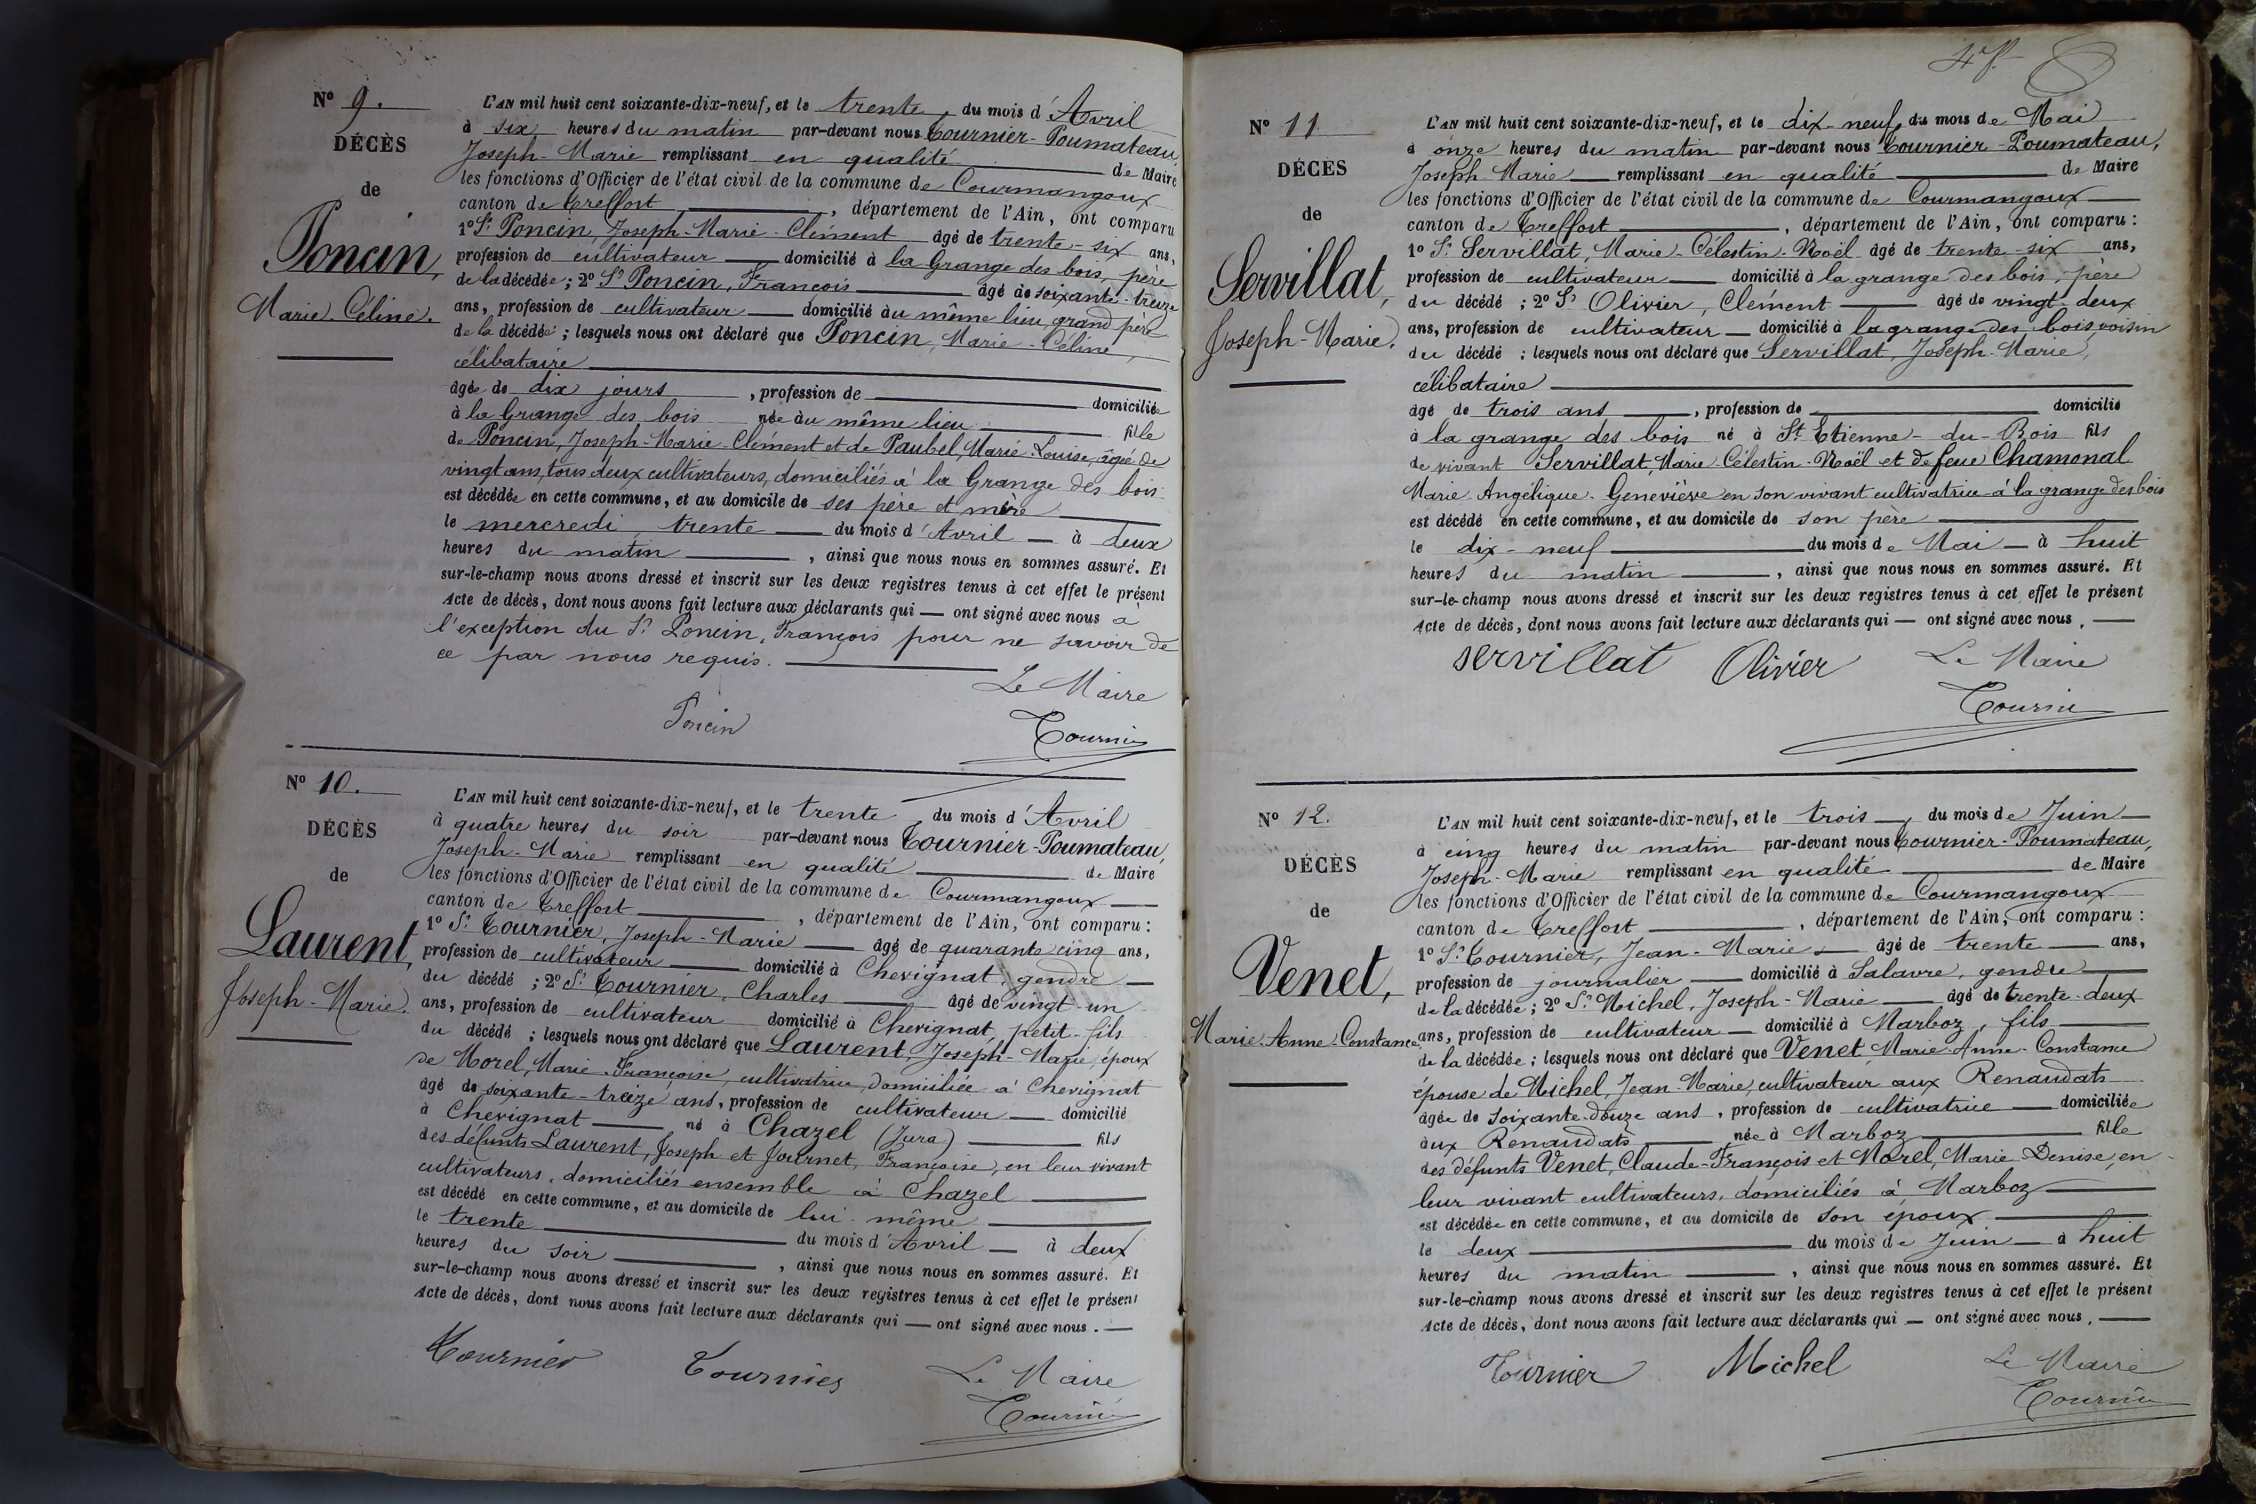 Nº 9.
DÉCÈS
de
Poncin,
Marie-Céline.
L'AN mil huit cent soixante-dix-neuf, et le trente du mois d'Avril
à six heures du matin par-devant nous Tournier-Poumateau,
Joseph-Marie remplissant en qualité de Maire
les fonctions d'Officier de l'état civil de la commune de Courmangoux
canton de Treffort, département de l'Ain, ont comparu
1º Sr Poncin, Joseph-Marie-Clément âgé de trente-six ans,
profession de cultivateur domicilié à la Grange des bois, père
de la décédée; 2º Sr Poncin, François âgé de soixante-treize
ans, profession de cultivateur domicilié au même lieu, grand père
de la décédée; lesquels nous ont déclaré que Poncin, Marie-Céline,
célibataire
âgée de dix jours, profession de domiciliée
à la Grange des bois née au même lieu fille
de Poncin, Joseph-Marie-Clément et de Paubel, Marie-Louise, âgée de
vingt ans, tous deux cultivateurs, domiciliés à la Grange des bois
est décédée en cette commune, et au domicile de ses père et mère
le mercredi trente du mois d'Avril à deux
heures du matin, ainsi que nous nous en sommes assuré. Et
sur-le-champ nous avons dressé et inscrit sur les deux registres tenus à cet effet le présent
Acte de décès, dont nous avons fait lecture aux déclarants qui ont signé avec nous à
l'exception du Sr Poncin, François pour ne savoir de
ce par nous requis.
Le Maire
Poncin
Tournier
Nº 10.
DÉCÈS
de
Laurent,
Joseph-Marie.
L'AN mil huit cent soixante-dix-neuf, et le trente du mois d'Avril
à quatre heures du soir par-devant nous Tournier-Poumateau,
Joseph-Marie remplissant en qualité de Maire
les fonctions d'Officier de l'état civil de la commune de Courmangoux
canton de Treffort, département de l'Ain, ont comparu:
1º Sr Tournier, Joseph-Marie âgé de quarante cinq ans,
profession de cultivateur domicilié à Chevignat, gendre
du décédé; 2º Sr Tournier, Charles âgé de vingt-un
ans, profession de cultivateur domicilié à Chevignat, petit-fils
du décédé; lesquels nous ont déclaré que Laurent, Joseph-Marie, époux
de Morel, Marie-Françoise, cultivatrice, domiciliée à Chevignat
âgé de soixante-treize ans, profession de cultivateur domicilié
à Chevignat né à Chazel (Jura) fils
des défunts Laurent, Joseph et Journet, Françoise, en leur vivant
cultivateurs, domiciliés ensemble à Chazel
est décédé en cette commune, et au domicile de lui-même
le trente du mois d'Avril à deux
heures du soir, ainsi que nous nous en sommes assuré. Et
sur-le-champ nous avons dressé et inscrit sur les deux registres tenus à cet effet le présent
Acte de décès, dont nous avons fait lecture aux déclarants qui ont signé avec nous.
Tournier Tournier Le Maire
Tournier
Nº 11
DÉCÈS
de
Servillat,
Joseph-Marie.
L'AN mil huit cent soixante-dix-neuf, et le dix-neuf du mois de Mai
à onze heures du matin par-devant nous Tournier-Poumateau,
Joseph-Marie remplissant en qualité de Maire
les fonctions d'Officier de l'état civil de la commune de Courmangoux
canton de Treffort, département de l'Ain, ont comparu:
1º Sr Servillat, Marie-Célestin-Noël âgé de trente-six ans,
profession de cultivateur domicilié à la grange des bois, père
du décédé; 2º Sr Olivier, Clément âgé de vingt-deux
ans, profession de cultivateur domicilié à la grange des bois, voisin
du décédé; lesquels nous ont déclaré que Servillat, Joseph-Marie,
célibataire
âgé de trois ans, profession de domicilié
à la grange des bois né à St Etienne-du-Bois fils
de vivant Servillat, Marie-Célestin-Noël et de feue Chamonal
Marie-Angélique-Geneviève en son vivant cultivatrice à la grange des bois
est décédé en cette commune, et au domicile de son père
le dix-neuf du mois de Mai à huit
heures du matin, ainsi que nous nous en sommes assuré. Et
sur-le-champ nous avons dressé et inscrit sur les deux registres tenus à cet effet le présent
Acte de décès, dont nous avons fait lecture aux déclarants qui ont signé avec nous.
servillat Olivier Le Maire
Tournier
Nº 12.
DÉCÈS
de
Venet,
Marie-Anne-Constance
L'AN mil huit cent soixante-dix-neuf, et le trois, du mois de Juin
à cinq heures du matin par-devant nous Tournier-Poumateau,
Joseph-Marie remplissant en qualité de Maire
les fonctions d'Officier de l'état civil de la commune de Courmangoux
canton de Treffort, département de l'Ain, ont comparu:
1º Sr Tournier, Jean-Marie âgé de trente ans,
profession de journalier domicilié à Salavre, gendre
de la décédée; 2º Sr Michel, Joseph-Marie âgé de trente-deux
ans, profession de cultivateur domicilié à Marboz, fils
de la décédée; lesquels nous ont déclaré que Venet Marie-Anne-Constance
épouse de Michel, Jean-Marie, cultivateur aux Renaudats
âgée de soixante-douze ans, profession de cultivatrice domiciliée
aux Renaudats née à Marboz fille
des défunts Venet, Claude-François et Morel, Marie-Denise, en
leur vivant cultivateurs, domiciliés à Marboz
est décédée en cette commune, et au domicile de son époux
le deux du mois de Juin à huit
heures du matin, ainsi que nous nous en sommes assuré. Et
sur-le-champ nous avons dressé et inscrit sur les deux registres tenus à cet effet le présent
Acte de décès, dont nous avons fait lecture aux déclarants qui ont signé avec nous.
Tournier Michel Le Maire
Tournier